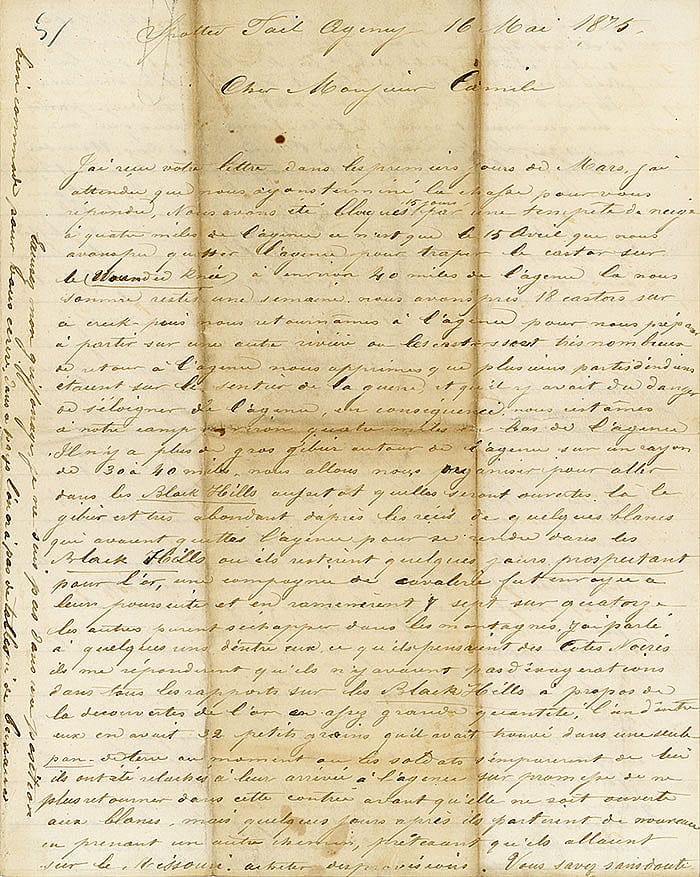 5/
Spotted Tail Agency 16 Mai 1875.
Cher Monsieur Camile
J'ai recu votre lettre dans les premiers jours de Mars, j'ai
attendu que nous ayons terminé la chasse pour vous
repondre, Nous avons été bloqués 15 jours par une tempête de neige
à quatre miles de l'agence ce n'est que le 15 Avril que nous
avons pu quitter l'agence pour traper le castor sur
le (Wounded Knee) à environ 40 miles de l'agence la nous
sommes restés une semaine, nous avons pris 18 castors sur
ce creek puis nous retournames à l'agence pour nous préparer
à partir sur une autre riviere ou les castors sont tres nombreux
de retour à l'agence nous apprimes que plusieurs partis d'indiens
étaient sur le sentier de la guerre et qu'il y avait du danger
de s'éloigner de l'agence, en consequence, nous restames
à notre camp environ quatre miles en bas de l'agence
Il n'y a plus de gros gibier autour de l'agence sur un rayon
de 30 à 40 miles. nous allons nous organiser pour aller
dans les Black Hills aussitot quelles seront ouvertes la le
gibier est tres abondant d'après les récits de quelques blancs
qui avaient quittés l'agence pour se rendre dans les
Black Hills ou ils restèrent quelques jours prospectant
pour l'or, une compagnie de cavalerie fut envoyée a
leur poursuite et en ramenèrent 7 sept sur quatorze
les autres purent s'echapper dans les montagnes, j'ai parlé
à quelques uns d'entre eux, ce qu'ils pensaient des Cotes Noires
ils me répondirent qu'ils n'y avaient pas d'exagerations
dans tous les rapports sur les Black Hills à propos de
la decouvertes de l'or en assez grande quantité, l'un d'entre
eux en avait 32 petits grains qu'il avait trouvé dans une seule
pan de terre au moment ou les soldats s'emparerent de lui
ils ont été relachés à leur arrivée à l'agence sur promesse de ne
plus retourner dans cette contrée avant qu'elle ne soit ouverte
aux blancs, mais quelques jours après ils partirent de nouveau
en prenant un autre chemin, prétextant qu'ils allaient
sur le Missouri acheter des provisions. Vous savez sans doute
mon griffonage je ne suis pas dans une position
bien commode pour vous écrire, dans ce pays l'on n'a pas de table ni de bureau